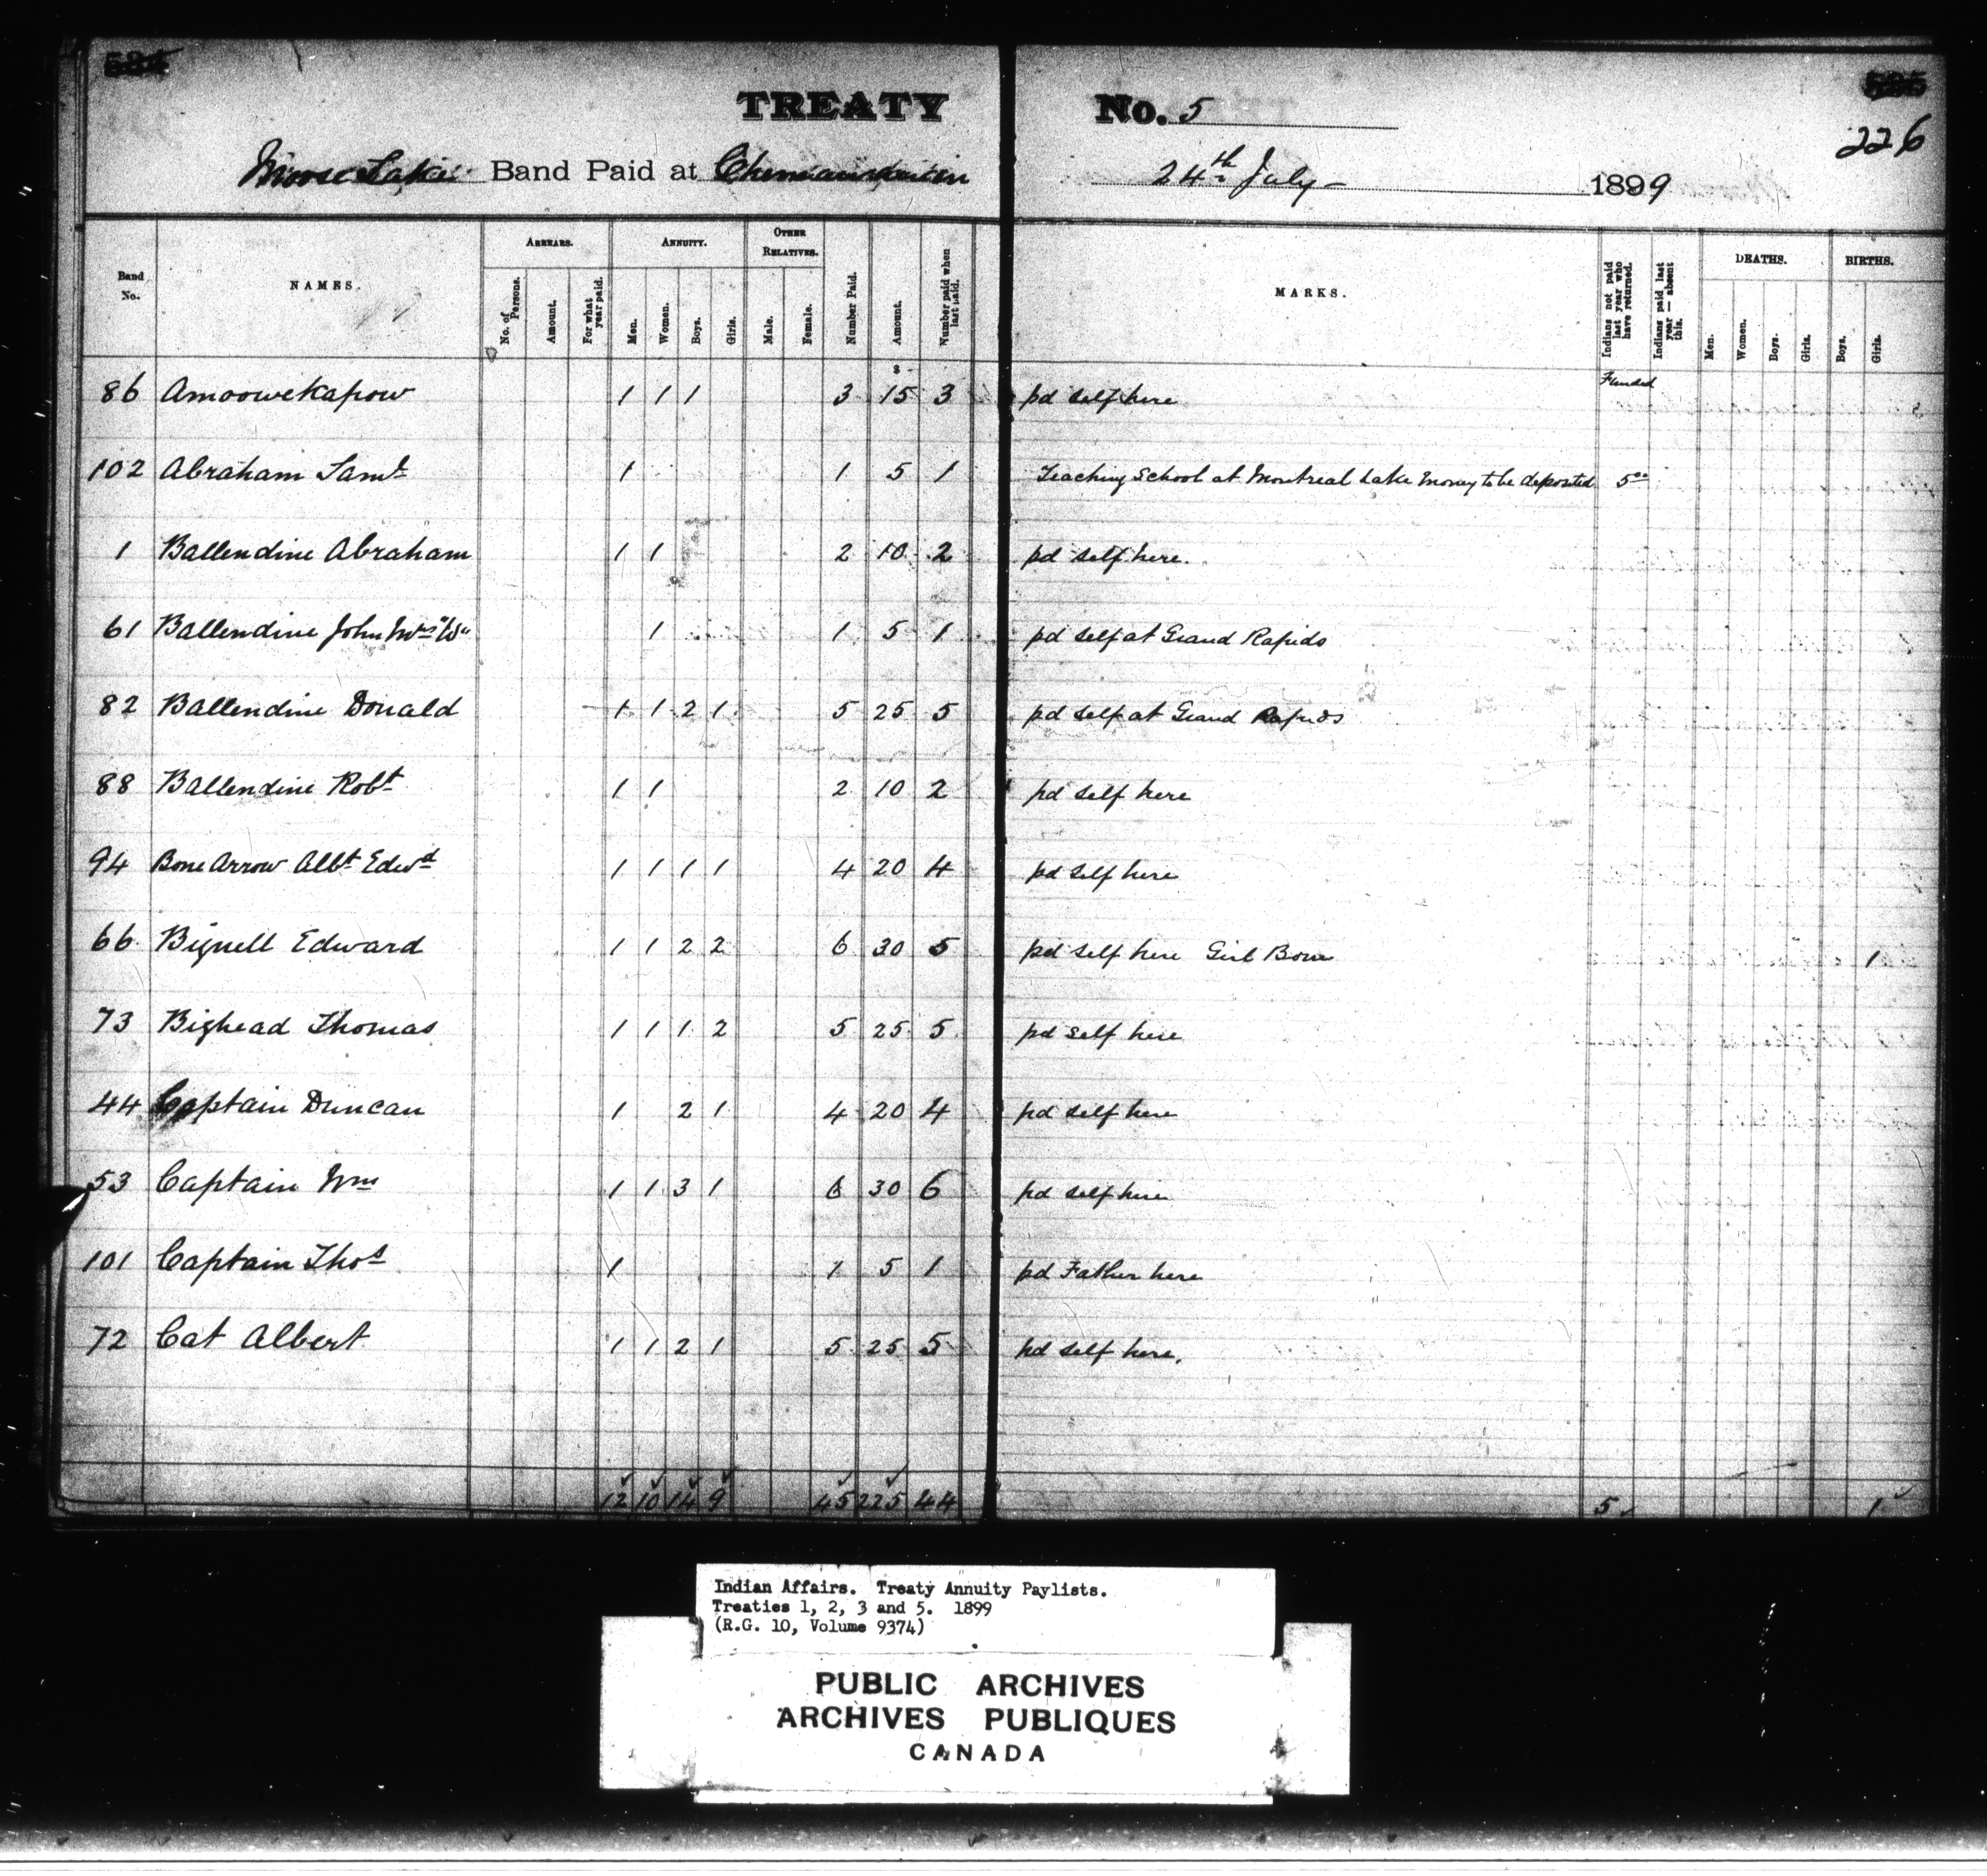 TREATY No. 5
226
Moose Lake Band Paid at Chemawawin 24th July 1899
Band No. NAMES. ARREARS. No. of Persons. Amount. For what year paid. ANNUITY. Men. Women. Boys. Girls. OTHER RELATIVES. Male. Female. Number Paid. Amount. Number paid when last paid. MARKS. Indians not paid last year who have returned. Indians paid last year — absent this. DEATHS. Men. Women. Boys. Girls. BIRTHS. Boys. Girls.
$ Funded
86 Amoowekapow 1 1 1 3 15 3 pd self here
102 Abraham Saml 1 1 5 1 Teaching School at Montreal Lake Money to be deposited 5 00
1 Ballendine Abraham 1 1 2 10 2 pd self here.
61 Ballendine John 1 1 5 1 pd self at Grand Rapids
82 Ballendine Donald 1 1 2 1 5 25 5 pd self at Grand Rapids
88 Ballendine Robt 1 1 2 10 2 pd self here
94 Bone Arrow Albt Edwd 1 1 1 1 4 20 4 pd self here
66 Bignell Edward 1 1 2 2 6 30 5 pd self here Girl Born 1
73 Bighead Thomas 1 1 1 2 5 25 5 pd self here
44 Captain Duncan 1 2 1 4 20 4 pd self here
53 Captain Wm 1 1 3 1 6 30 6 pd self here
101 Captain Thos 1 1 5 1 pd Father here
72 Cat Albert 1 1 2 1 5 25 5 pd self here.
12 10 14 9 45 225 44 5 1
Indian Affairs. Treaty Annuity Paylists.
Treaties 1, 2, 3 and 5. 1899
(R.G. 10, Volume 9374)
PUBLIC ARCHIVES
ARCHIVES PUBLIQUES
CANADA